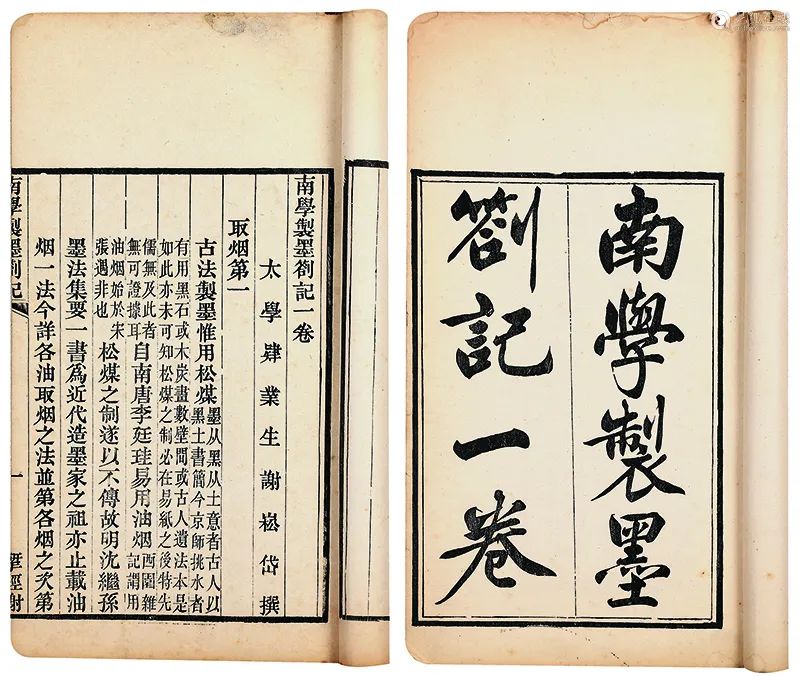 南學製墨
劄記一卷
南學製墨劄記一卷
太學肄業生謝崧岱撰
取烟第一
古法製墨惟用松煤墨从黑从土意者古人以
黑土書簡今京師挑水者
有用黑石或木炭畫數壁間或古人遺法本是
如此亦未可知松煤之制必在易紙之後特先
儒無及此者
無可證據耳自南唐李廷珪易用油烟西園雜
記謂用
油烟始於宋
張遇非也松煤之制遂以不傳故明沈繼孫
墨法集要一書爲近代造墨家之祖亦止載油
烟一法今詳各油取烟之法並第各烟之次第
南學製墨劄記
一